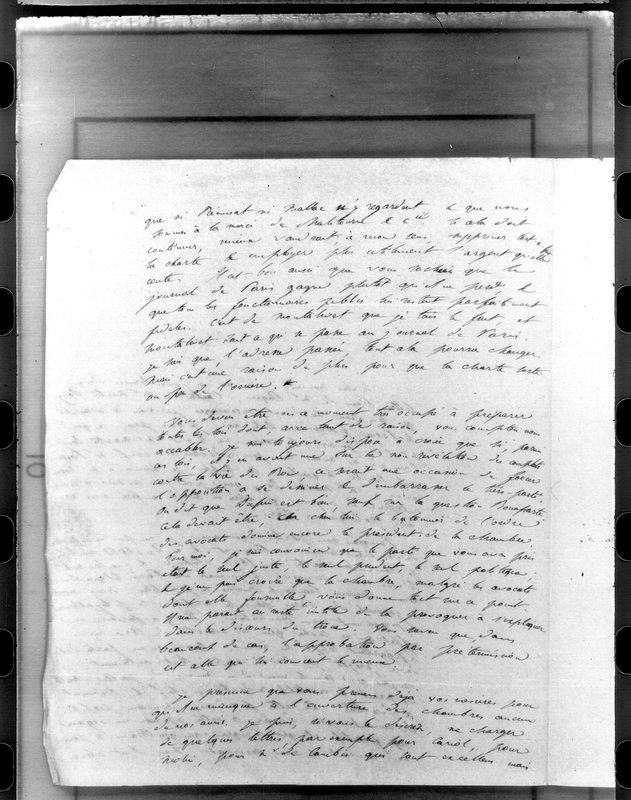 que ni Rémusat ni Malbac n'y regardent le que nous
sommes à la merci de Malitourne & Cie. Si cela doit
continuer, mieux vaudrait, à mon sens, supprimer tout à fait
la charte & employer plus utilement l'argent qu'elle
coute. Il est bon aussi que vous sachiez que le
journal de Paris gagne plutôt qu'il ne perd &
que tous les fonctionnaires publics lui restent parfaitement
fidèles. C'est de Montalivet que je tiens le fait et
Montalivet sait ce qui se passe au journal de Paris.
Je sais que, l'adresse passée, tout cela pourra changer
mais c'est une raison de plus pour que la charte reste
un peu de l'encre.
Vous devez être en ce moment très occupé à préparer
toutes les lois dont, avec tant de raison, vous comptez nous
accabler. Je suis toujours disposé à croire que si parmi
ces lois, il y en avait une sur la non révélation des complots
contre la vie du Roi, ce serait une occasion de forcer
l'opposition à se dessiner & d'embarrasser le tiers-parti.
On dit que Dupin est bien, sauf sur la question Bonaparte
cela devait être. Chez lui, le bâtonnier de l'ordre
des avocats domine encore le président de la chambre
Pour moi, je suis convaincu que le parti que vous avez pris
était le seul juste, le seul prudent, le seul politique,
& je ne puis croire que la chambre, malgré les avocats
dont elle fourmille vous donne tort sur ce point.
Il me paraît au reste inutile de la provoquer à s'expliquer
dans le discours du trône. Vous savez que, dans
beaucoup de cas, l'approbation par prétermission
est celle qui lui convient le mieux.
Je présume que vous prenez déjà vos mesures pour
qu'il ne manque à l'ouverture des chambres aucun
de nos amis. Je puis, si vous le désirez, me charger
de quelques lettres par exemple pour Cariol, pour
pour Mr de qui sont excellens mais